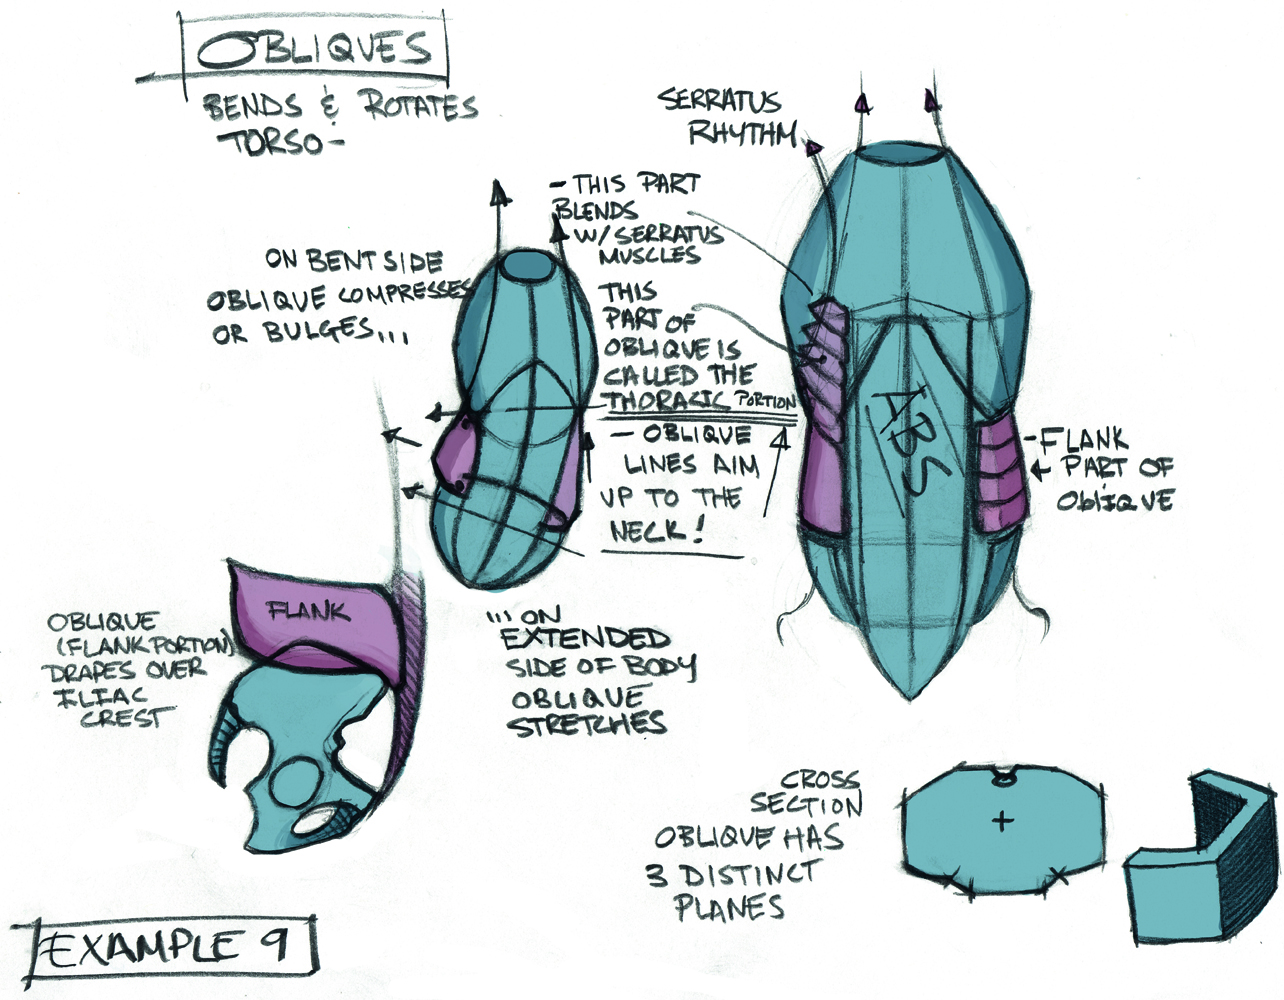 OBLIQUES
BENDS & ROTATES
TORSO-
SERRATUS
RHYTHM
- THIS PART
BLENDS
W/ SERRATUS
MUSCLES
ON BENT SIDE
OBLIQUE COMPRESSES
OR BULGES...
THIS
PART OF
OBLIQUE IS
CALLED THE
THORACIC PORTION
- OBLIQUE
LINES AIM
UP TO THE
NECK!
ABS
- FLANK
PART OF
OBLIQUE
FLANK
OBLIQUE
(FLANK PORTION)
DRAPES OVER
ILIAC
CREST
... ON
EXTENDED
SIDE OF BODY
OBLIQUE
STRETCHES
CROSS
SECTION
OBLIQUE HAS
3 DISTINCT
PLANES
EXAMPLE 9